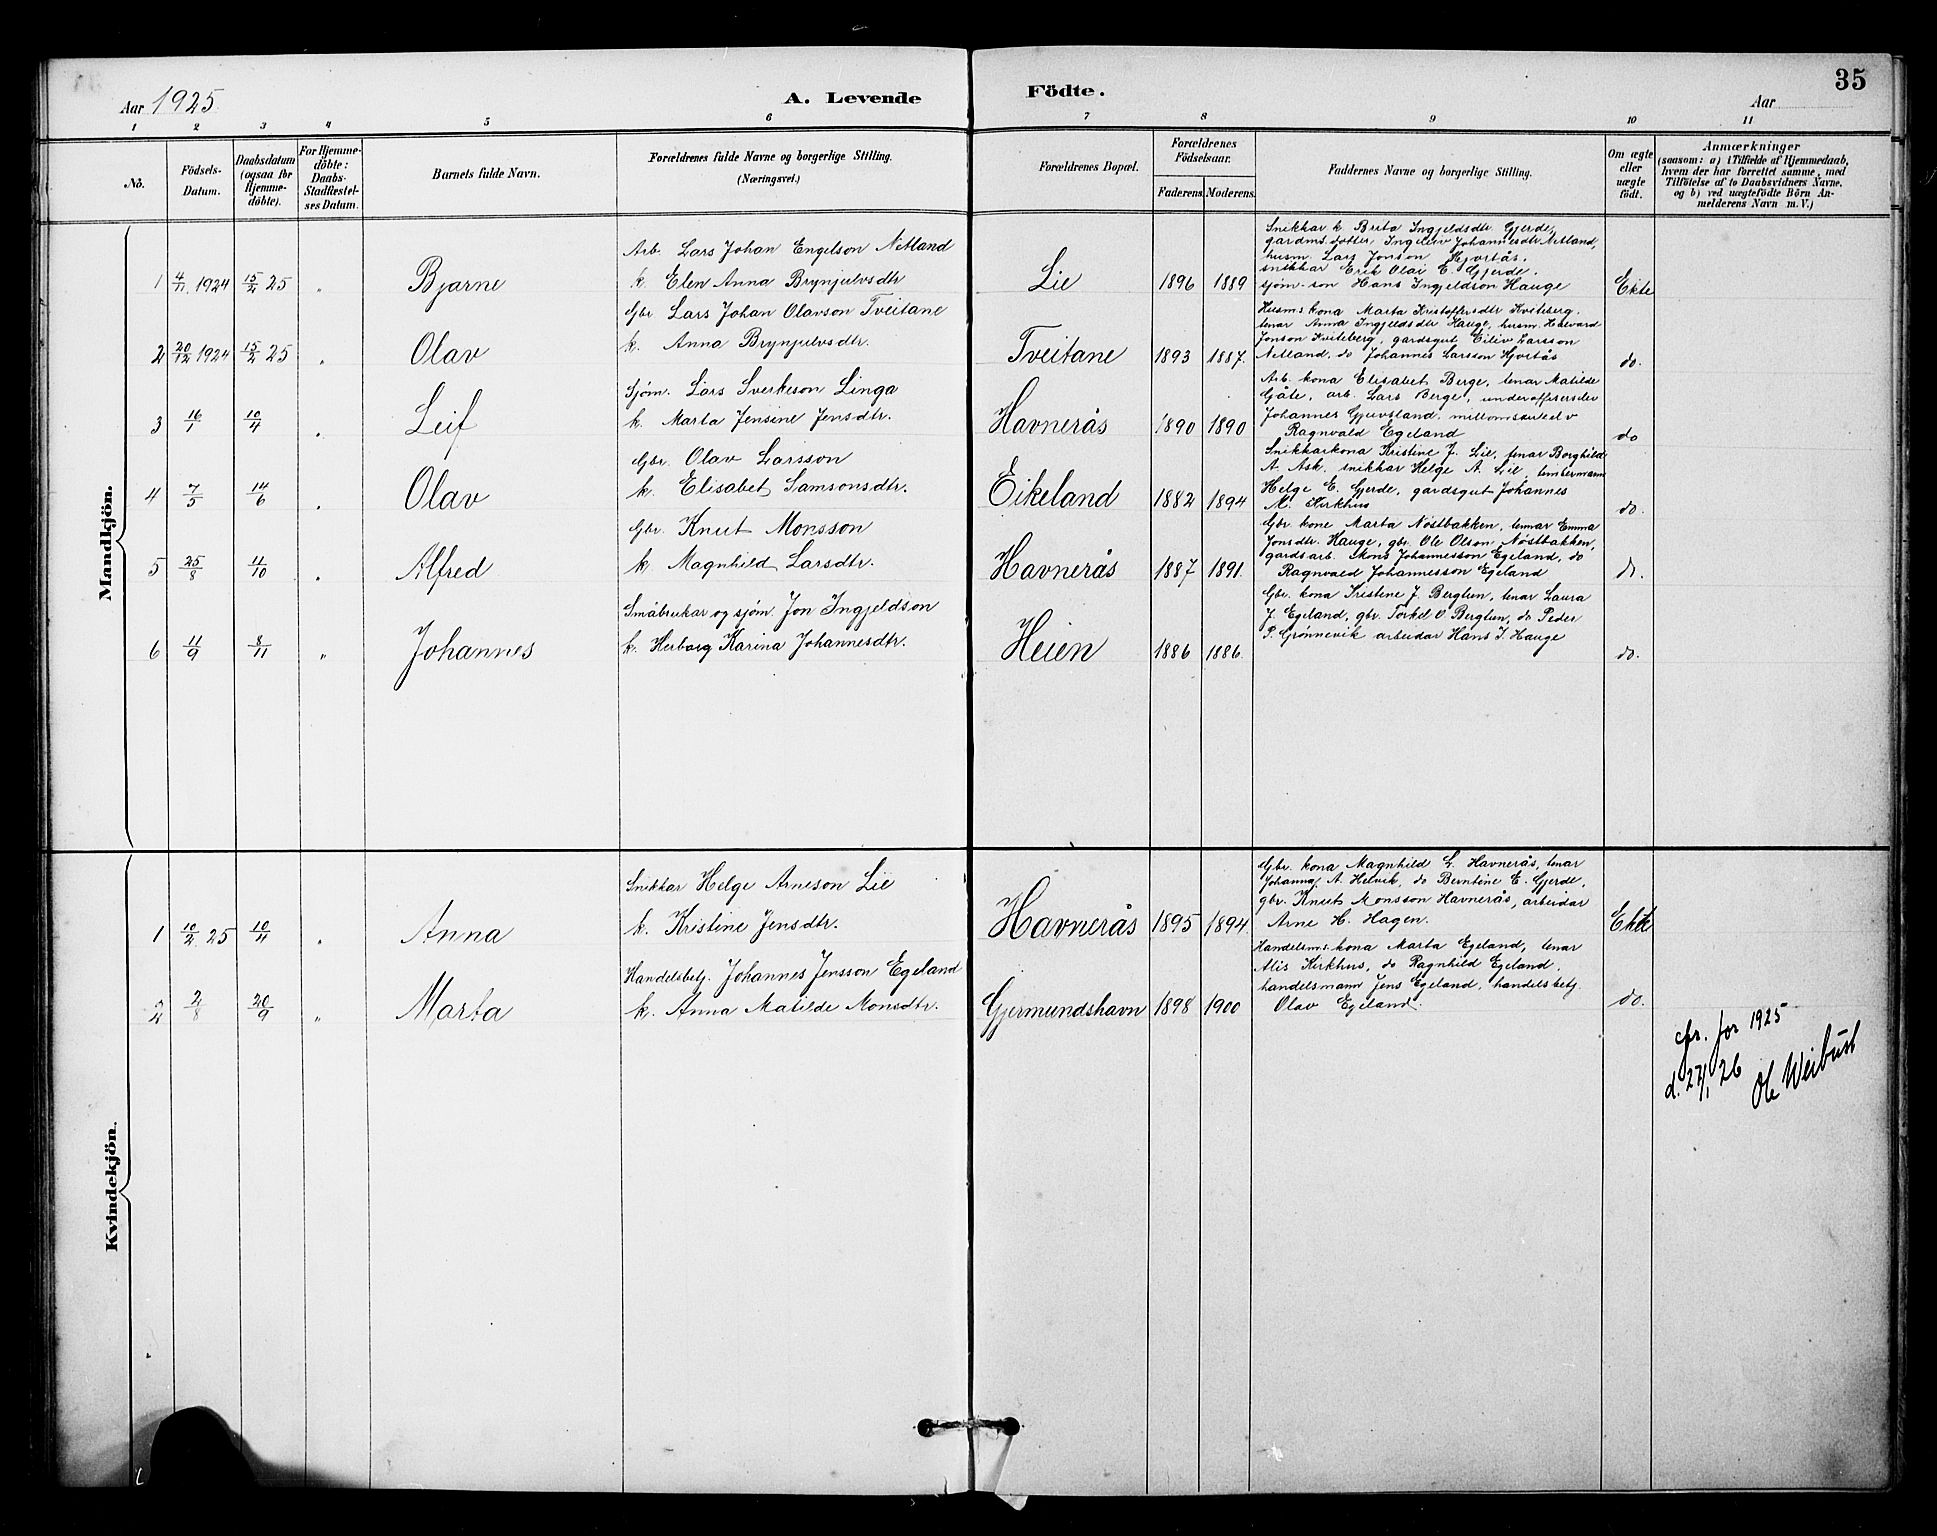 35
Aar 1925
A. Levende Födte.
Aar
1 2 3 4 5 6 7 8 9 10 11
No.
Födsels-Datum.
Daabsdatum (ogsaa for Hjemme-döbte).
For Hjemme-döbte: Daabs-Stadfæstel-ses Datum.
Barnets fulde Navn.
Forældrenes fulde Navne og borgerlige Stilling. (Næringsvei.)
Forældrenes Bopæl.
Forældrenes Födselsaar.
Faderens Moderens
Faddernes Navne og borgerlige Stilling.
Om ægte eller uægte født.
Anmærkninger
(saasom: a) i Tilfælde af Hjemmedaab,
hvem der har forrettet samme, med
Tilföielse af to Daabsvidners Navne,
og b) ved uægtefödte Börn An-
melderens Navn m. V.)
Mandkjön.
1 4/11 1924 15/2 25 " Bjarne
Arb. Lars Johan Engelson Nitland
k. Elen Anna Brynjulvsdtr
Lie 1896 1889
Snikkar k Brita Ingjeldsdtr Gjerde,
gardms. dotter, Ingeleiv Johannesdtr Nitland,
husm. Lars Jonson Hjortås,
snikkar Erik Olai E. Gjerde.
sjøm. son Hans Ingjeldson Hauge
Ekte
2 20/12 1924 15/2 25 " Olav
Gbr Lars Johan Olavson Tveitane
k. Anna Brynjulvsdtr.
Tveitane 1893 1887.
Husms kona Marta Kristoffersdtr Kviteberg.
tenar Anna Ingjeldsdtr Hauge, husm. Håvard
Jonson Kviteberg, gardsgut Eiliv Larsson
Nitland, do Johannes Larsson Hjortås
do.
3 16/1 10/4 " Leif
Sjøm. Lars Sverkeson Linga
k. Marta Jensine Jensdtr.
Havnerås 1890 1890
Arb. kona Elisabet Berge, tenar Matilde
Gjåte, arb. Lars Berge, underoffiserselev
Johannes Gjuvsland,
Ragnvald Egeland
do
4 7/5 14/6 " Olav
Gbr. Olav Larsson
k. Elisabet Samsonsdtr.
Eikeland 1882 1894
Snikkarkona Kristine J. Lie, tenar Borghild
A. Ask, snikkar Helge A. Lie, timbermann
Helge E. Gjerde, gardsgut Johannes
M. Kirkhus
do.
5 25/8 11/10 " Alfred
Gbr. Knut Monsson
k. Magnhild Larsdtr.
Havnerås 1887 1891.
Gbr. kone Marta Nøstbakken, tenar Emma
Jonsdtr. Hauge, gbr. Ole Olson Nøstbakken,
gardsarb. Mons Johannesson Egeland, do
Ragnvald Johannesson Egeland
do.
6 11/9 8/11 " Johannes
Småbrukar og sjøm. Jon Ingjeldson
k. Herborg Karina Johannesdtr.
Heien 1886 1886.
Gbr. kona Kristine J. Bergtun, tenar Laura
J. Egeland, gbr. Torkel O Bergtun, do Peder
P. Grønnevik arbeidar Hans I. Hauge
do.
Kvindekjön.
1 10/2 25 10/4 " Anna
Snikkar Helge Arneson Lie
k. Kristine Jensdtr.
Havnerås 1895 1894.
Gbr. kona Magnhild L. Havnerås, tenar
Johanna A. Helvik, do Berntine E. Gjerde,
gbr. Knut Monsson Havnerås, arbeidar
Arne H. Hagen.
Ekte
2 2/8 20/9 " Marta
Handelsbetj. Johannes Jensson Egeland
k. Anna Matilde Monsdtr.
Gjermundshavn 1898 1900
Handelsms. kona Marta Egeland, tenar
Alis Kirkhus, do Ragnhild Egeland,
handelsmann Jens Egeland, handelsbetj.
Olav Egeland.
do.
cfr. for 1925
d. 27/1 26 Ole Weibust